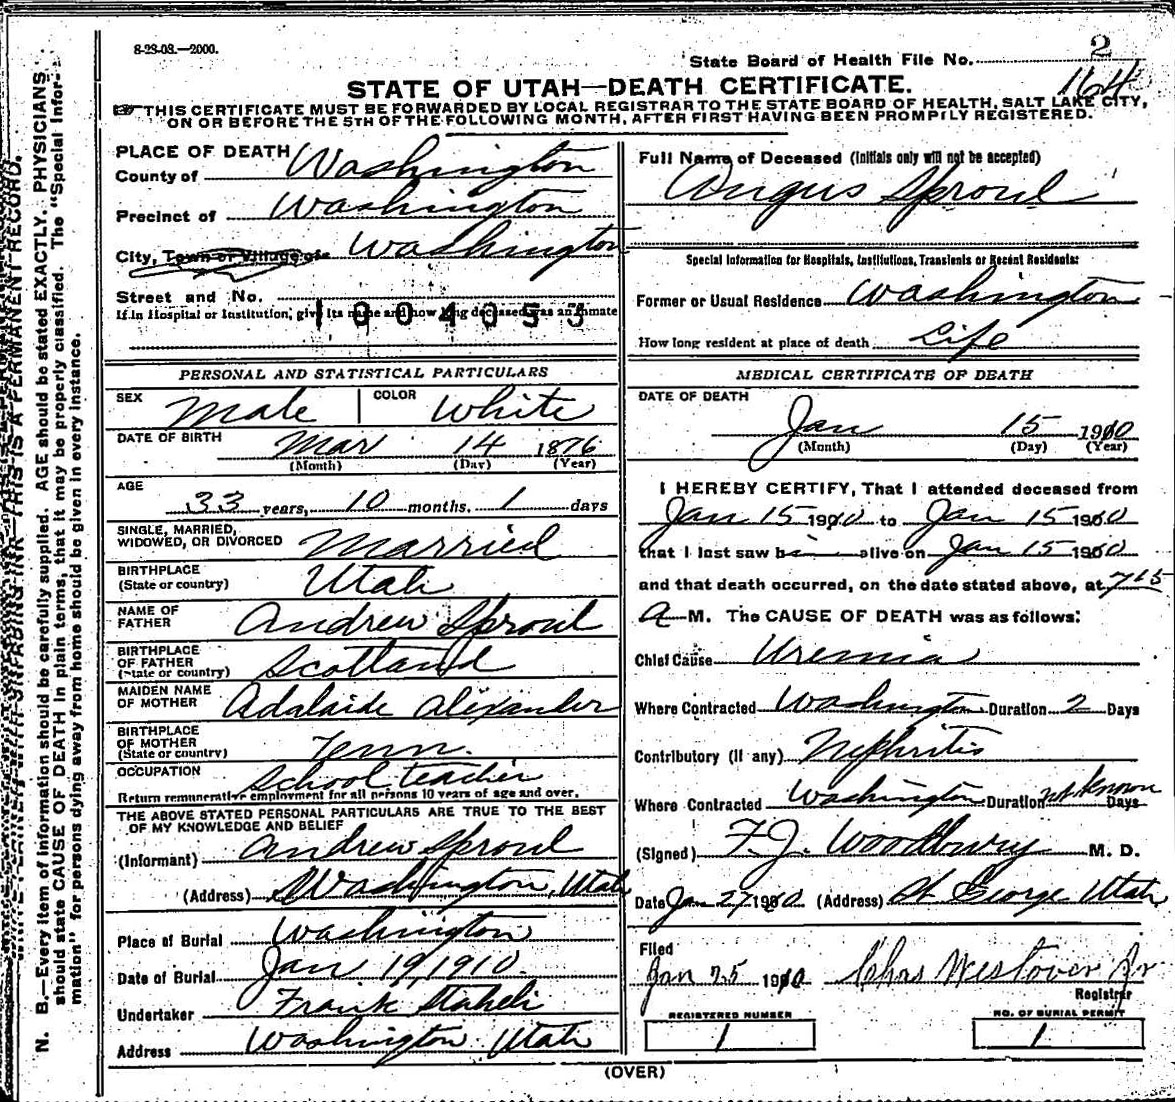 8-23-08.—2000.
2
State Board of Health File No.
164
STATE OF UTAH—DEATH CERTIFICATE.
THIS CERTIFICATE MUST BE FORWARDED BY LOCAL REGISTRAR TO THE STATE BOARD OF HEALTH, SALT LAKE CITY,
ON OR BEFORE THE 5TH OF THE FOLLOWING MONTH, AFTER FIRST HAVING BEEN PROMPTLY REGISTERED.
PLACE OF DEATH
County of Washington
Precinct of Washington
City, Town or Village of Washington
Street and No.
If in Hospital or Institution, give its name and how long deceased was an inmate
1904053
PERSONAL AND STATISTICAL PARTICULARS
SEX Male COLOR White
DATE OF BIRTH Mar 14 1876
(Month) (Day) (Year)
AGE
33 years, 10 months, 1 days
SINGLE, MARRIED,
WIDOWED, OR DIVORCED Married
BIRTHPLACE
(State or country) Utah
NAME OF
FATHER Andrew Sproul
BIRTHPLACE
OF FATHER
(State or country) Scotland
MAIDEN NAME
OF MOTHER Adalaide Alexander
BIRTHPLACE
OF MOTHER
(State or country) Tenn.
OCCUPATION School teacher
Return remunerative employment for all persons 10 years of age and over.
THE ABOVE STATED PERSONAL PARTICULARS ARE TRUE TO THE BEST
OF MY KNOWLEDGE AND BELIEF
(Informant) Andrew Sproul
(Address) Washington, Utah
Place of Burial Washington
Date of Burial Jan 19/1910
Undertaker Frank Staheli
Address Washington Utah
Full Name of Deceased (Initials only will not be accepted)
Angus Sproul
Special Information for Hospitals, Institutions, Transients or Recent Residents:
Former or Usual Residence Washington
How long resident at place of death Life
MEDICAL CERTIFICATE OF DEATH
DATE OF DEATH
Jan 15 1910
(Month) (Day) (Year)
I HEREBY CERTIFY, That I attended deceased from
Jan 15 1910 to Jan 15 1910
that I last saw him alive on Jan 15 1910
and that death occurred, on the date stated above, at 7 15
A M. The CAUSE OF DEATH was as follows:
Chief Cause Uremia
Where Contracted Washington Duration 2 Days
Contributory (if any) Nephritis
Where Contracted Washington Duration not known Days
(Signed) F. J. Woodbury M. D.
Date Jan 27 1910 (Address) St George Utah
Filed
Jan 25 1910 Chas Westover Jr
Registrar
REGISTERED NUMBER
1
NO. OF BURIAL PERMIT
1
(OVER)
N. B.—Every item of information should be carefully supplied. AGE should be stated EXACTLY. PHYSICIANS
should state CAUSE OF DEATH in plain terms, that it may be properly classified. The "Special Infor-
mation" for persons dying away from home should be given in every instance.
WITH UNFADING INK—THIS IS A PERMANENT RECORD.